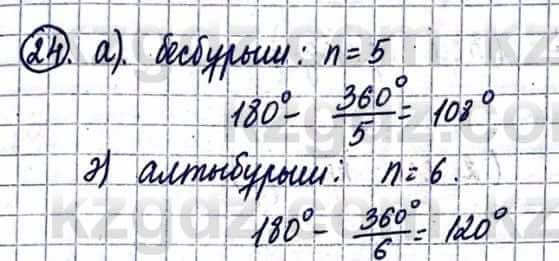 24. а). бесбұрыш: n = 5
180° - 360°/5 = 108°
ә) алтыбұрыш: n = 6.
180° - 360°/6 = 120°